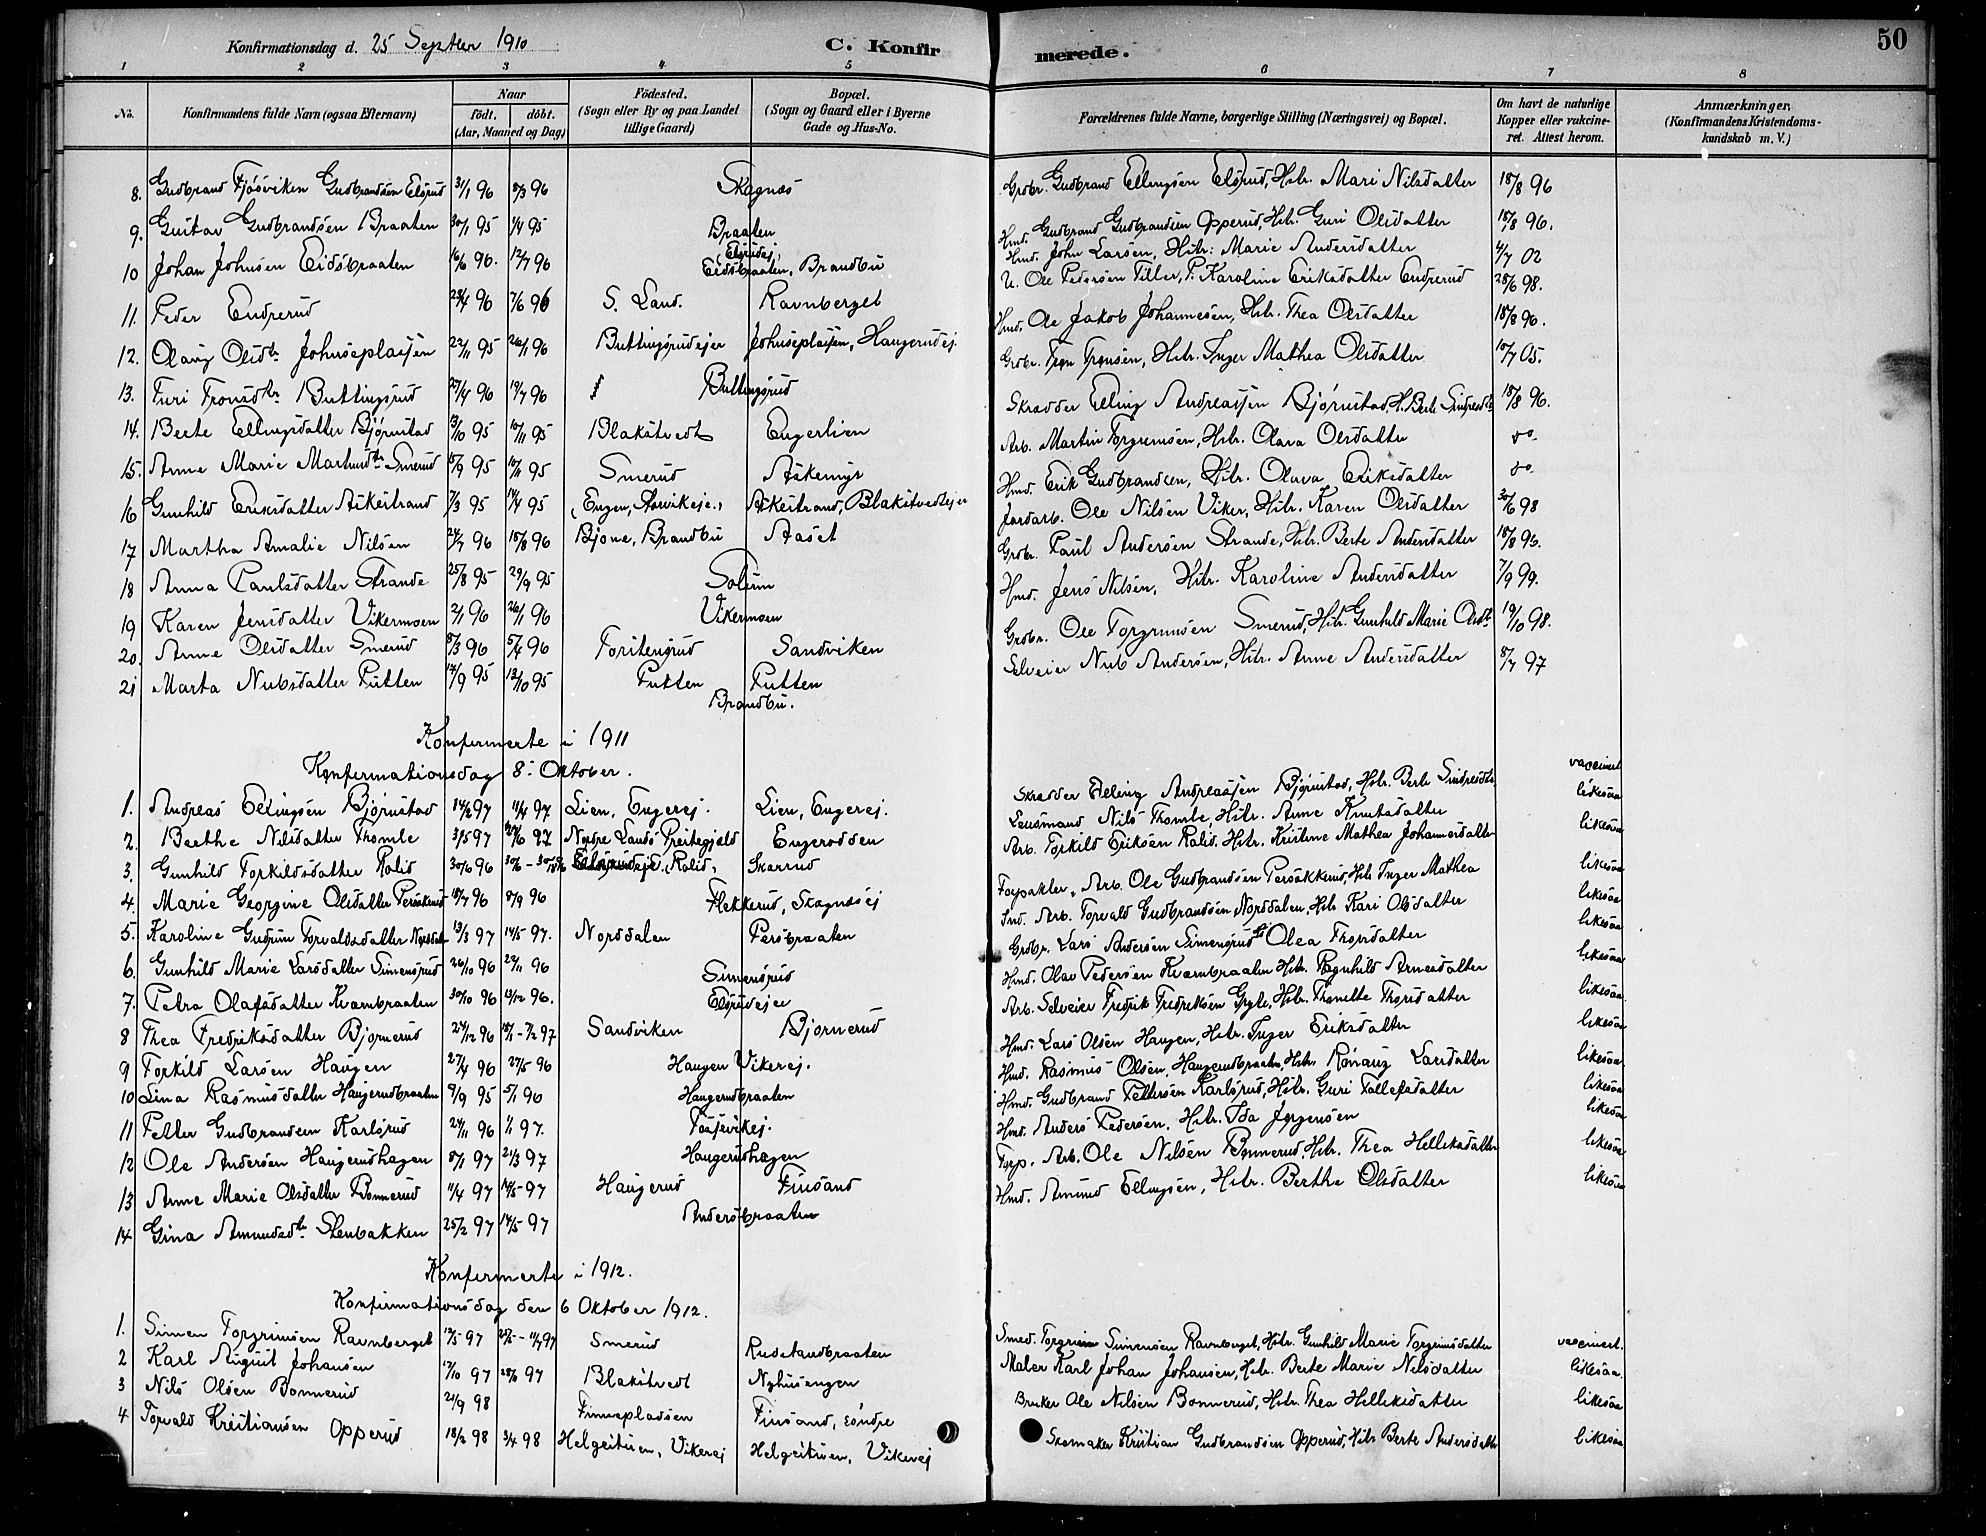 50
Konfirmationsdag d. 25 Septber 1910 C. Konfirmerede.
1 2 3 4 5 6 7 8
No. Konfirmandens fulde Navn (ogsaa Efternavn) Naar født. døbt. (Aar, Maaned og Dag) Födested. (Sogn eller By og paa Landet tillige Gaard) Bopæl. (Sogn og Gaard eller i Byerne Gade og Hus-No. Forældrenes fulde Navne, borgerlige Stilling (Næringsvei) og Bopæl. Om havt de naturlige Kopper eller vakcineret. Attest herom. Anmærkninger, (Konfirmandens Kristendomskundskab m. V.)
8. Gudbrand Fjøsviken Gudbrandsen Elsrud 31/1 96 8/3 96 Skagnæs Grdbr. Gudbrand Ellingsen Elsrud, Hstr. Mari Nilsdatter 18/8 96
9. Gustav Gudbrandsen Braaten 30/1 95 1/4 95 Braaten (Elsrudej.) Hmd. Gudbrand Gudbrandsen Opperud, Hstr. Guri Olsdatter 18/8 96.
10 Johan Johnsen Eidsbraaten 16/6 96. 12/7 96 Eidsbraaten, Brandbu Hmd. John Larsen, Hstr: Marie Andersdatter 4/7 02
11. Peder Endrerud 28/4 96 7/6 96 S. Land. Ravnberget U. Ole Pedersen Tiller, P. Karoline Eriksdatter Endrerud 28/6 98.
12. Olaug Olsdtr Johnseplassen 22/11 95 26/1 96 Buttingsrudejer Johnseplassen, Haugerudej. Hmd. Ole Jakob Johannesen, Hstr. Thea Olsdatter 18/8 96.
13. Turi Tronsdtr Buttingsrud 27/4 96 19/7 96 Buttingsrud Grdbr. Tron Tronsen, Hstr. Inger Mathea Olsdatter 10/7 05.
14. Berte Ellingsdatter Bjørnstad 13/10 95 10/11 95 Blakstvedt Engerlien Skradder Elling Andreassen Bjørnstad, H. Berte Sindresdtr 18/8 96.
15. Anne Marie Martinsdtr Smerud 15/9 95 10/11 95 Smerud Askemyr Arb. Martin Torgrimsen, Hstr. Olava Olsdatter do.
16 Gunhild Eriksdatter Askestrand 7/3 95 14/4 95 (Engen, Aasvikeje.) Askestrand, Blakstvedtejer Hmd. Erik Gudbrandsen, Hstr. Olava Eriksdatter do.
17 Martha Amalie Nilsen 24/7 96 18/8 96 Bjone, Brandbu Aaset Jordarb. Ole Nilsen Viker, Hstr. Karen Olsdatter 30/6 98
18 Anna Paulsdatter Strande 25/8 95 29/9 95 Solum Grdbr. Paul Andersen Strande, Hstr. Berte Andersdatter 18/8 96.
19 Karen Jensdatter Vikermoen 2/1 96 26/1 96 Vikermoen Hmd. Jens Nilsen, Hstr. Karoline Andersdatter 7/9 99.
20. Anne Olsdatter Smerud 8/3 96 5/4 96 Sandviken Grdbr. Ole Torgrimsen Smerud, Hstr. Gunhild Marie Olsdtr 19/10 98.
21 Marta Nubsdatter Putten 17/9 95 13/10 95 Putten Putten Brandbu. Selveier Nub Andersen, Hstr. Anne Andersdatter 8/7 97
Konfermerte i 1911
Konfermationsdag 8. Oktober.
1. Andreas Ellingsen Bjørnstad 14/2 97 11/4 97 Lien, Engerej. Lien, Engerej. Skradder Elling Andreassen Bjørnstad, Hstr. Berte Sindresdtr vaccinert
2. Berthe Nilsdatter Thomle 3/5 97 27/6 97 Nordre Lands Prestegjeld Engerodden Lensmand Nils Thomle, Hstr. Anne Knutsdatter likesaa
3. Gunhild Torkildsdatter Rolid 30/6 96 Skarrud Arb. Torkild Eriksen Rolid, Hstr. Kristine Mathea Johannesdatter likesaa
4. Marie Georgine Olsdatter Persøkkerud 18/7 96 8/9 96 Flekkerud, Skagnæsej Forpakter, Arb. Ole Gudbrandsen Persøkkerud, Hstr Inger Mathea likesaa
5. Karoline Gudrun Torvaldsdatter Norddalen 13/3 97 14/5 97. Norddalen Persbraaten Ind. Arb. Torvald Gudbrandsen Norddalen, Hstr Kari Olsdatter likesaa
6. Gunhild Marie Larsdatter Simensrud 26/10 96 22/11 96 Simensrud Grdbr. Lars Andersen Simensrud Hs Olea Thorsdatter likesaa
7. Petra Olafsdatter Kvambraaten 30/10 96 4/12 96. Elsrudejer Hmd. Olav Pedersen Kvambraaten Hstr. Ragnhild Arnesdatter likesaa
8 Thea Fredriksdatter Bjørnerud 24/12 96 18/1 - 7/2 97 Sandviken Bjørnerud Arb. Selveier Fredrik Fredriksen Gyle, Hstr. Thonette Thorsdatter likesaa.
9 Torkild Larsen Haugen 27/4 96 27/5 96 Haugen Vikerej. Hmd. Lars Olsen Haugen, Hstr. Inger Eriksdatter likesaa
10 Lina Rasmusdatter Haugerudbraaten 9/9 95 5/1 96 Haugerudbraaten Hmd. Rasmus Olsen, Haugerudbraaten, Hstr. Rønnaug Larsdatter likesaa.
11 Petter Gudbrandsen Karlsrud 24/11 96 1/1 97. Hmd. Gudbrand Pettersen Karlsrud, Hstr. Guri Tollefsdatter likesaa
12 Ole Andersen Haugerudhagen 8/1 97 21/3 97 Haugerudhagen Hmd. Anders Pedersen, Hstr. Ida Jørgensen likesaa
13 Anne Marie Olsdatter Bonnerud 11/4 97 14/5 97 Haugerud Finsand Forp. Arb. Ole Nilsen Bonnerud, Hstr. Thea Helliksdatter likesaa
14 Gina Amundsdtr Stenbakken 25/2 97 14/5 97 Andersbraaten Hmd. Amund Ellingsen, Hstr. Berthe Olsdatter likesaa
Konfermerte i 1912.
Konfirmationsdag den 6 Oktober 1912.
1. Simen Torgrimsen Ravnberget 12/5 97 Smerud Rudstandbraaten Smed. Torgrim Simensen Ravnberget, Hstr. Gunhild Marie Torgrimsdatter vaccinert.
2 Karl August Johansen 17/10 97 28/6 97 Blakstvedt Nyhusengen Maler Karl Johan Johansen, Hstr. Berte Marie Nilsdatter likesaa.
3 Nils Olsen Bonnerud 21/9 98 Finnepladsen Finsand, søndre Bruker Ole Nilsen Bonnerud, Hstr. Thea Helliksdatter likesaa
4 Torvald Kristiansen Opperud 18/2 98 3/4 98 Helgestuen, Vikerej Helgestuen, Vikerej Skomaker Kristian Gudbrandsen Opperud, Hstr Berte Andersdatter likesaa